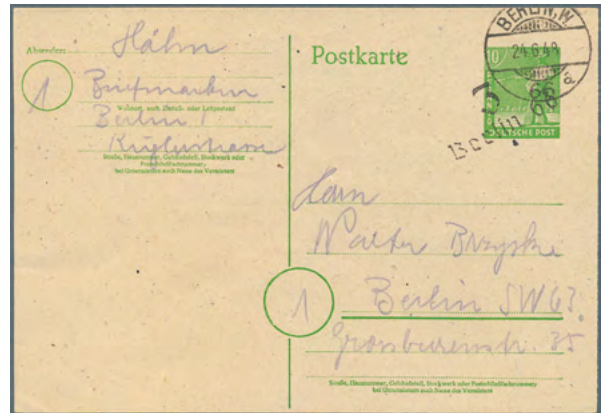 Absender: Hähn
1
Briefmarken
Wohnort, auch Zustell- oder Leitpostamt
Berlin 1
Straße, Hausnummer, Gebäudeteil, Stockwerk oder
Postschließfachnummer;
bei Untermietern auch Name des Vermieters
Postkarte
BERLIN W
24.6.48
10
66
DEUTSCHE POST
Herrn
Walter
1
Berlin SW
35
Straße, Hausnummer, Gebäudeteil, Stockwerk oder Postschließfachnummer;
bei Untermietern auch Name des Vermieters